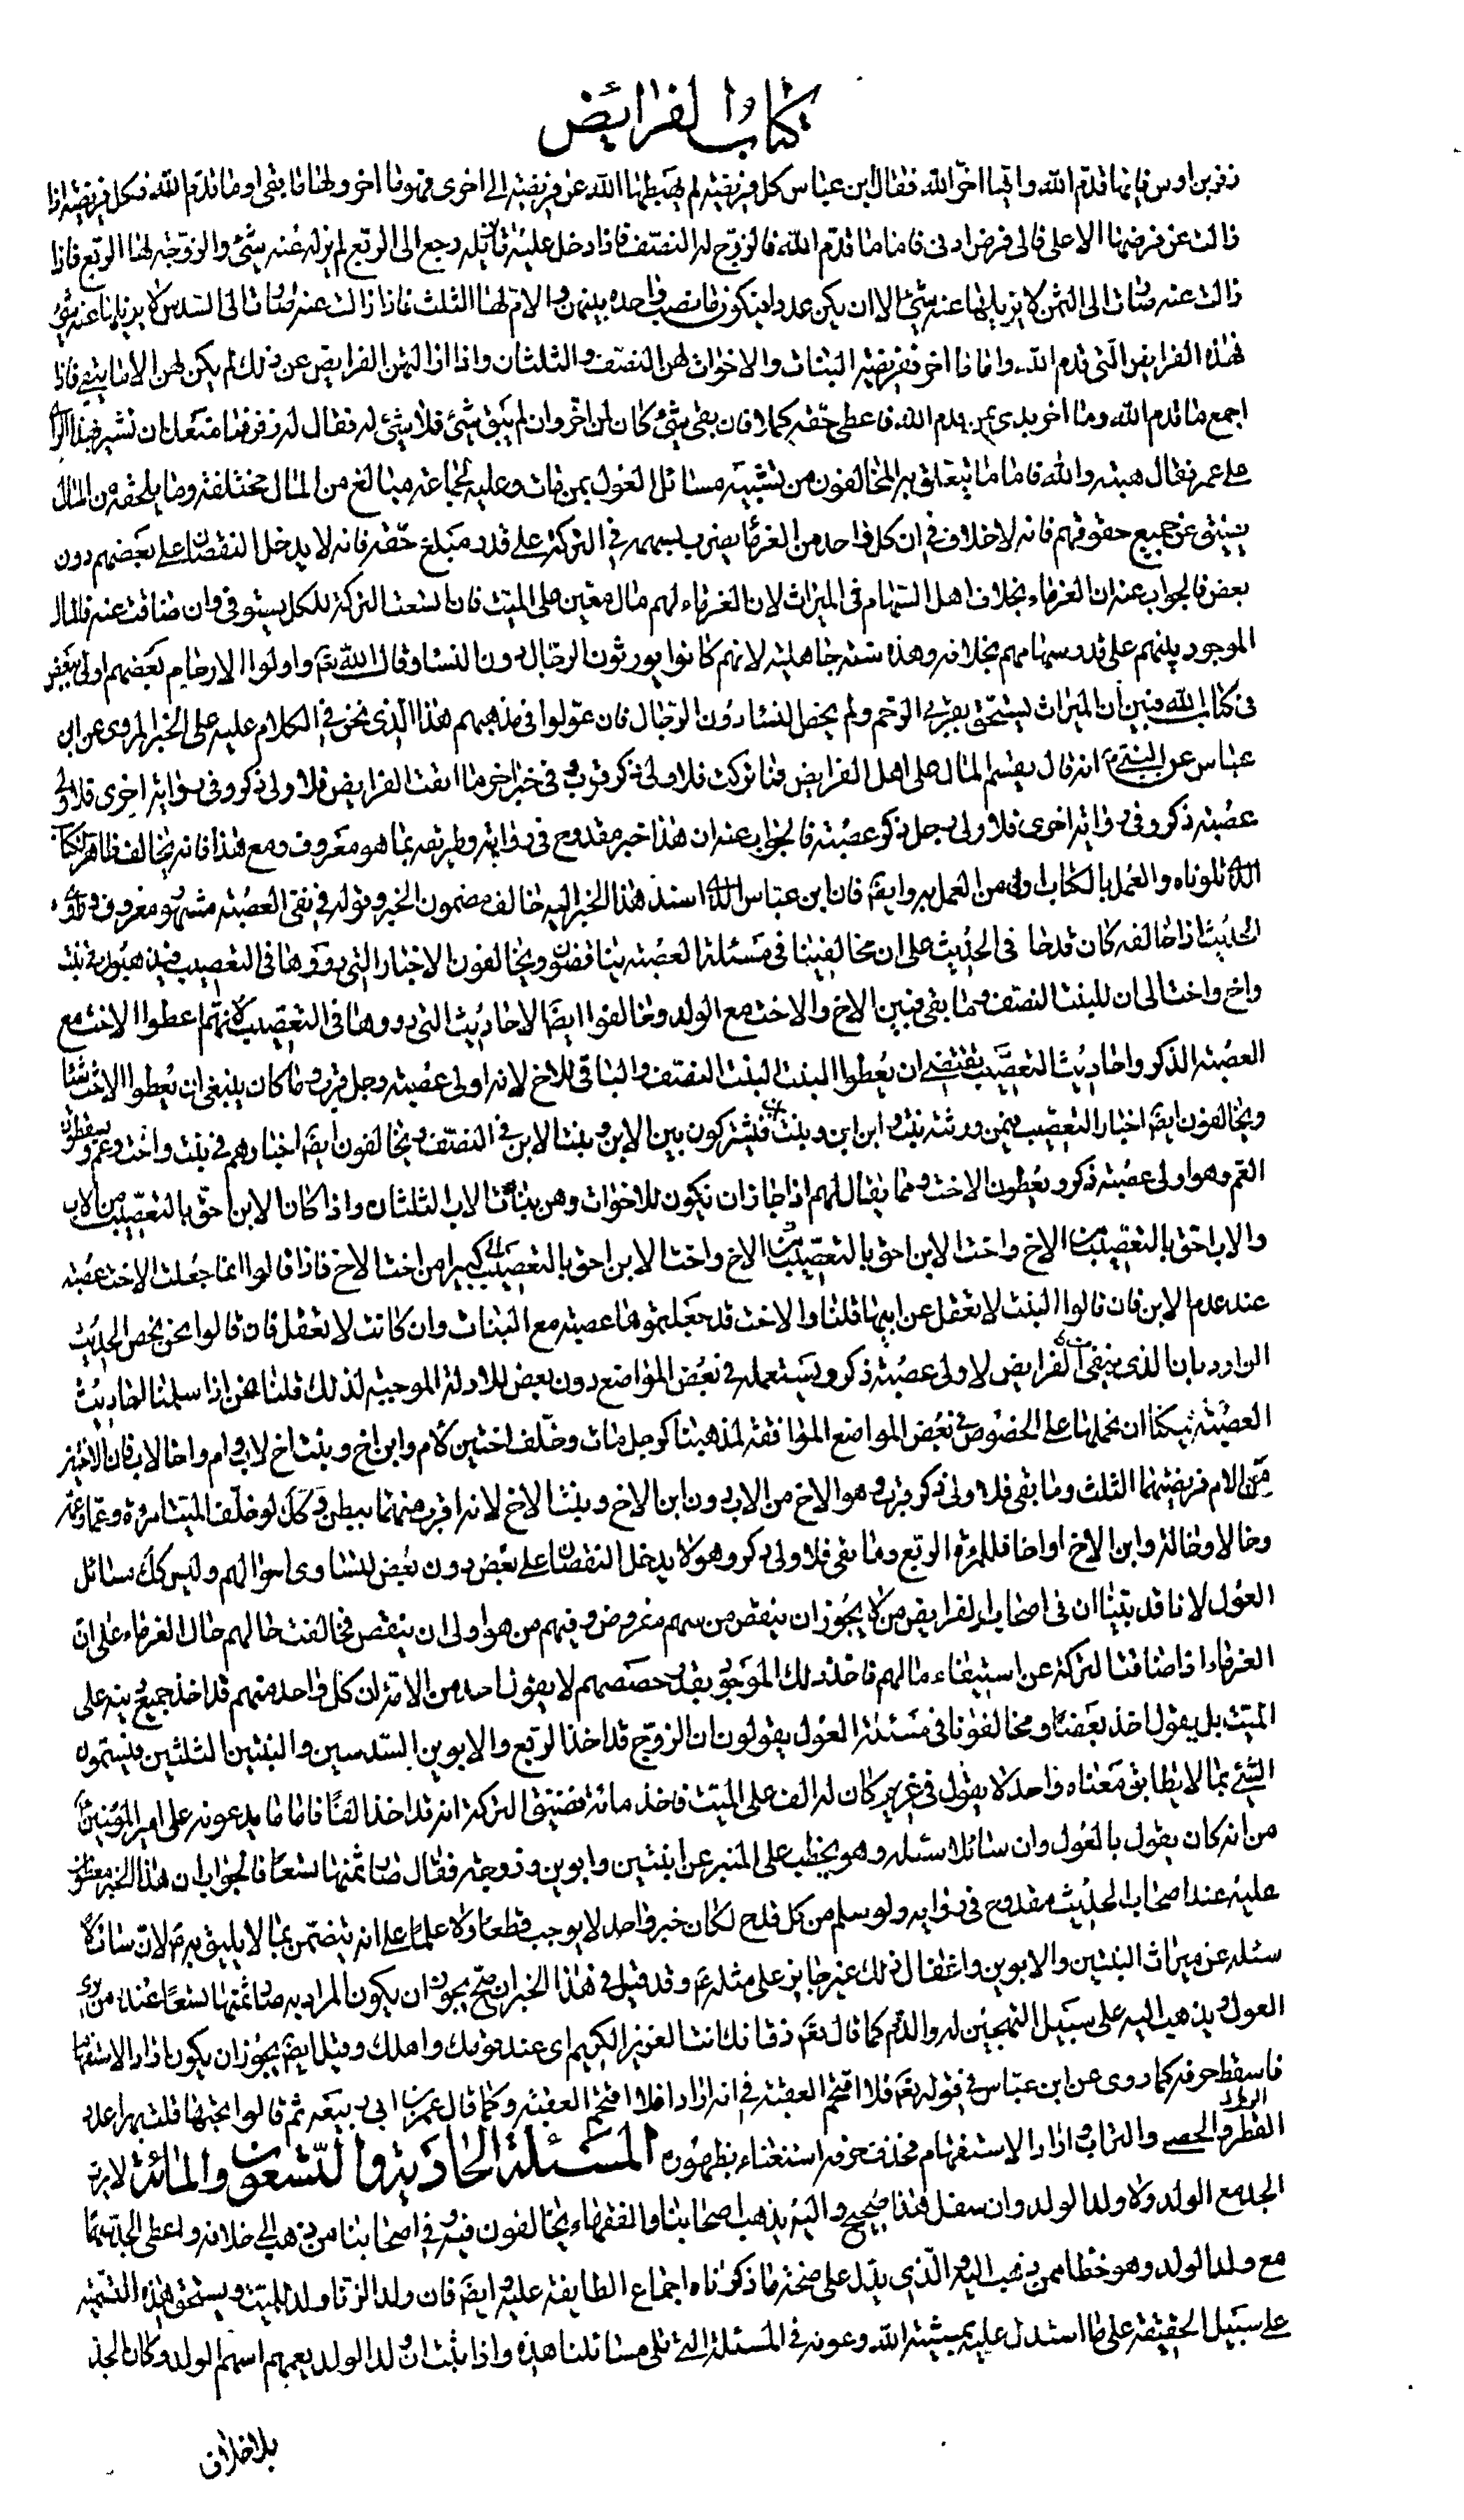 كتاب الفرايض
زفر بن اوس فايها قدم الله وايها اخر الله فقال ابن عباس كل فريضة لم يهبطها الله عن فريضة الى اخرى فهو ما اخر ولها ما بقي او ما قدم الله فكل فريضة اذا
زالت عن فرضها الاعلى فالى فرض ادنى فاما ما قدم الله فالزوج له النصف فاذا دخل عليه ما يزيله رجع الى الربع لم يزله عنه شئ والزوجة لها الربع فاذا
زالت عنه صارت الى الثمن لا يزيلها عنه شئ الا ان يكن عددا فيكون ما نصيب واحدة بينهن والام لها الثلث فاذا زالت عنه صارت الى السدس لا يزيلها عنه شئ
فهذه الفرايض التي قدم الله واما ما اخر ففريضة البنات والاخوات لهن النصف والثلثان واذا ازالتهن الفرايض عن ذلك لم يكن لهن الا ما يبقى فاذا
اجمع ما قدم الله وما اخر بدى بمن قدم الله فاعطى حقه كملا فان بقي شئ كان لمن اخر وان لم يبق شئ فلا شئ له فقال له زفر فما منعك ان تشير بهذا الراى
على عمر فقال هبته والله فاما ما يتعلق به المخالفون من تشبيه مسائل العول بمن مات وعليه لجماعة مبالغ من المال مختلفة وما يلحقه من المال
يضيق عن جميع حقوقهم فانه لا خلاف في ان كل واحد من الغرماء يضرب بسهمه في التركة على قدر مبلغ حقه فانه لا يدخل النقصان على بعضهم دون
بعض فالجواب عنه ان الغرماء بخلاف اهل السهام في الميراث لان الغرماء لهم مال معين على الميت فان اتسعت التركة للكل يستوفى وان ضاقت عنه فالمال
الموجود بينهم على قدر سهامهم بخلافه وهذه سنة جاهلية لانهم كانوا يورثون الرجال دون النساء وقال الله تعم واولوا الارحام بعضهم اولى ببعض
في كتاب الله فبين ان الميراث ليستحق بقربى الرحم ولم يخص النساء دون الرجال فان عولوا في مذهبهم هذا الذي نحن في الكلام عليه على الخبر المروى عن ابن
عباس عن النبي انه قال يقسم المال على اهل الفرايض فما تركت فلاولى ذكر قرب وفي خبر اخر ما ابقت الفرايض فلاولى ذكر وفي رواية اخرى فلاولى
عصبة ذكر وفي رواية اخرى فلاولى رجل ذكر عصبة فالجواب عنه ان هذا خبر مقدوح في رواته وطريقه بما هو معروف ومع هذا فانه يخالف ظاهر كتاب
الله تلوناه والعمل بالكتاب اولى من العمل به وايضا فان ابن عباس الذي اسند هذا الخبر اليه خالف مضمون الخبر وقوله في نفى العصبة مشهور معروف وراوى
الحديث اذا خالفه كان قدحا في الحديث على ان مخالفينا في مسئلة العصبة يناقضون ويخالفون الاخبار التي رووها في التعصيب فيذهبون في بنت
واخ واخت الى ان للبنت النصف وما بقي فبين الاخ والاخت مع الولد وخالفوا ايضا الاحاديث التي رووها في التعصيب لانهم اعطوا الاخت مع
العصبة الذكر واحاديث التعصيب يقتضي ان يعطوا البنت للبنت النصف والباقي للاخ لانه اولى عصبة رجل قرب وما كان ينبغي ان يعطوا الاخت شيئا
ويخالفون ايضا اخبار التعصيب فيمن ورثته بنت وابن ابن وبنت ابن فيشتركون بين الابن وبنت الابن في النصف ويخالفون ايضا اخبارهم في بنت واخت وعم ويسقطون
العم وهو اولى عصبة ذكر ويعطون الاخت ومما يقال لهم اذا جاز ان يكون للاخوات وهن بنات الاب الثلثان واذا كان الابن احق بالتعصيب من الاب
والاب احق بالتعصيب من الاخ واخت الابن احق بالتعصيب من الاخ واخت الابن احق بالتعصيب كثيرا من اخت الاخ فاذا قالوا انما جعلت الاخت عصبة
عند عدم الابن فان قالوا البنت لا تعقل عن ابيها قلنا والاخت قد جعلتموها عصبة مع البنات وان كانت لا تعقل فان قالوا نحن نخص الحديث
الوارد بان الذي يبقى الفرايض لاولى عصبة ذكر ويستعمله في بعض المواضع دون بعض للادلة الموجبة لذلك قلنا نحن اذا سلمنا احاديث
العصبة يمكننا ان نحملها على الخصوص في بعض المواضع الموافقة لمذهبنا كرجل مات وخلف اختين لام وابن اخ وبنت اخ لاب وام واخا لاب فان الاختين
من الام فريضتهما الثلث وما بقي فلاولى ذكر قرب وهو الاخ من الاب دون ابن الاخ وبنت الاخ لانه اقرب منهما ببطن وكك لو خلف الميت امرءة وعما وعمة
وخالا وخالة وابن الاخ او اخا فللمرءة الربع وما بقي فلاولى ذكر وهو لا يدخل النقصان على بعض دون بعض لتساوى احوالهم وليس كك مسائل
العول لانا قد بينا ان في اصحاب الفرايض من لا يجوز ان ينقص من سهم مفروض وفيهم من هو اولى ان ينقص فخالفت حالهم حال الغرماء على ان
الغرماء اذا ضاقت التركة عن استيفاء مالهم فاخذ ذلك الموجود بقدر حصصهم لا يقول احد من الامة ان كل واحد منهم قد اخذ جميع دينه على
الميت بل يقول اخذ بعضه ومخالفونا في مسئلة العول يقولون ان الزوج قد اخذ الربع والابوين السدسين والبنتين الثلثين فيسمون
الشئ بما لا يطابق معناه واحد لا يقول في غريم كان له الف على الميت فاخذ مائة لضيق التركة انه قد اخذ الفا فاما ما يدعونه على امير المؤمنين
من انه كان يقول بالعول وان سائلا سئله وهو يخطب على المنبر عن ابنتين وابوين وزوجة فقال صار ثمنها تسعا فالجواب ان هذا الخبر مطعون
عليه عند اصحاب الحديث مقدوح في رواته ولو سلم من كل قدح لكان خبر واحد لا يوجب قطعا ولا علما على انه يتضمن بما لا يليق به لان سائلا
سئله عن ميراث البنتين والابوين واغفال ذلك غير جايز على مثله وقد قيل في هذا الخبر ان صح يجوز ان يكون المراد به صار ثمنها تسعا عند من يرى
العول ويذهب اليه على سبيل التهجين له والذم كما قال تعم ذق انك انت العزيز الكريم اى عند قومك واهلك وقيل ايضا يجوز ان يكون اراد الاستفهام
فاسقط حرفه كما روى عن ابن عباس في قوله تعم فلا اقتحم العقبة في انه اراد افلا اقتحم العقبة وكما قال عمر بن ابي ربيعة ثم قالوا تحبها قلت بهرا عدد
القطر والحصى والتراب اراد الاستفهام فحذف حرفه استغناء بظهوره المسئلة الحادية والتسعون والمائة لا يرث
الجد مع الولد ولا ولد الولد وان سفل فهذا صحيح واليه يذهب اصحابنا والفقهاء يخالفون فيه وفي اصحابنا من ذهب الى خلافه واعطى الجد سهما
مع ولد الولد وهو خطا ممن ذهب اليه والذي يدل على صحة ما ذكرناه اجماع الطايفة عليه وايضا فان ولد الولد ولد للميت ويستحق هذه التسمية
على سبيل الحقيقة على ما استدل عليه بمشية الله وعونه في المسئلة التي تلى مسائلنا هذه واذا ثبت ان ولد الولد يعمهم اسم الولد وكان الجد
بلا خلاف